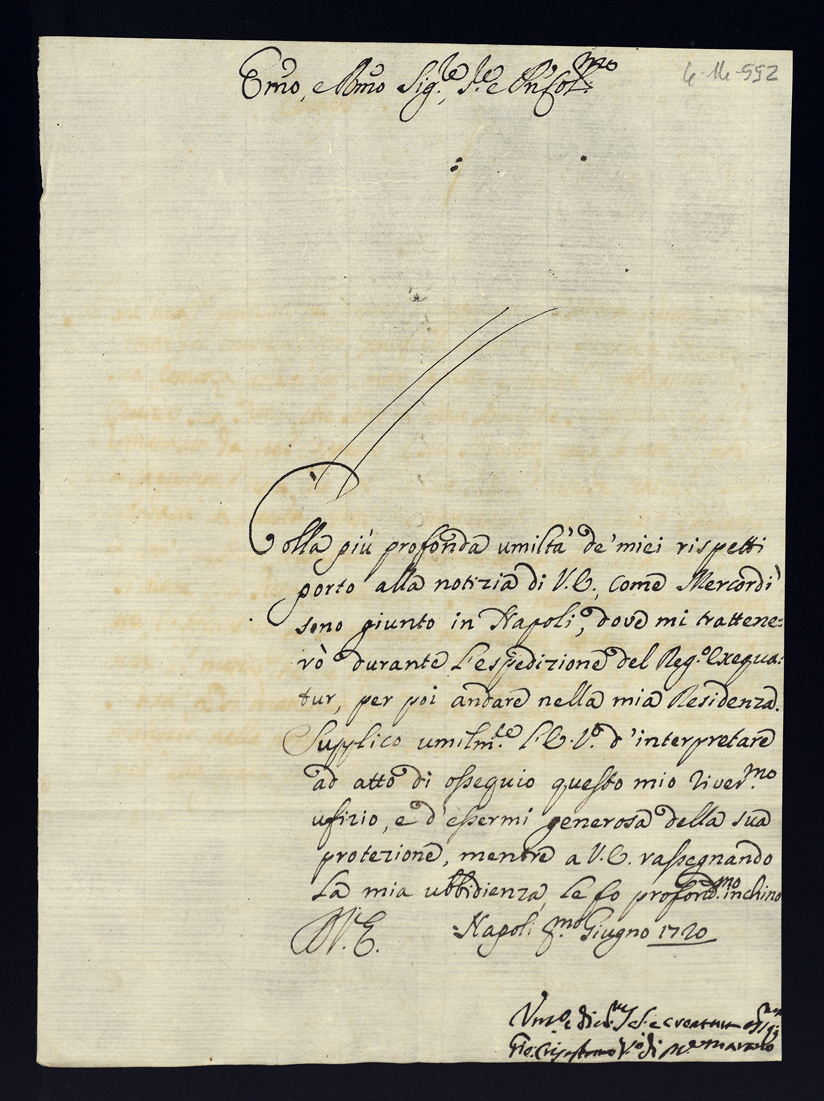 Em̃o, e Rm̃o Sig.re, S.re e Pñ Col.mo
4-14-552
Colla più profonda umiltà de' miei rispetti
porto alla notizia di V.E., come Mercordì
sono giunto in Napoli, dove mi trattene=
rò durante l'espedizione del Reg.o Exequa=
tur, per poi andare nella mia Residenza.
Supplico umilm.te l'E.V.a d'interpretare
ad atto di ossequio questo mio river.mo
ufizio, e d'essermi generosa della sua
protezione, mentre a V.E. rassegnando
la mia ubbidienza, le fo profond.mo inchino
D.V.E. Napoli p.mo Giugno 1720
Gio: Crisostomo V.o di